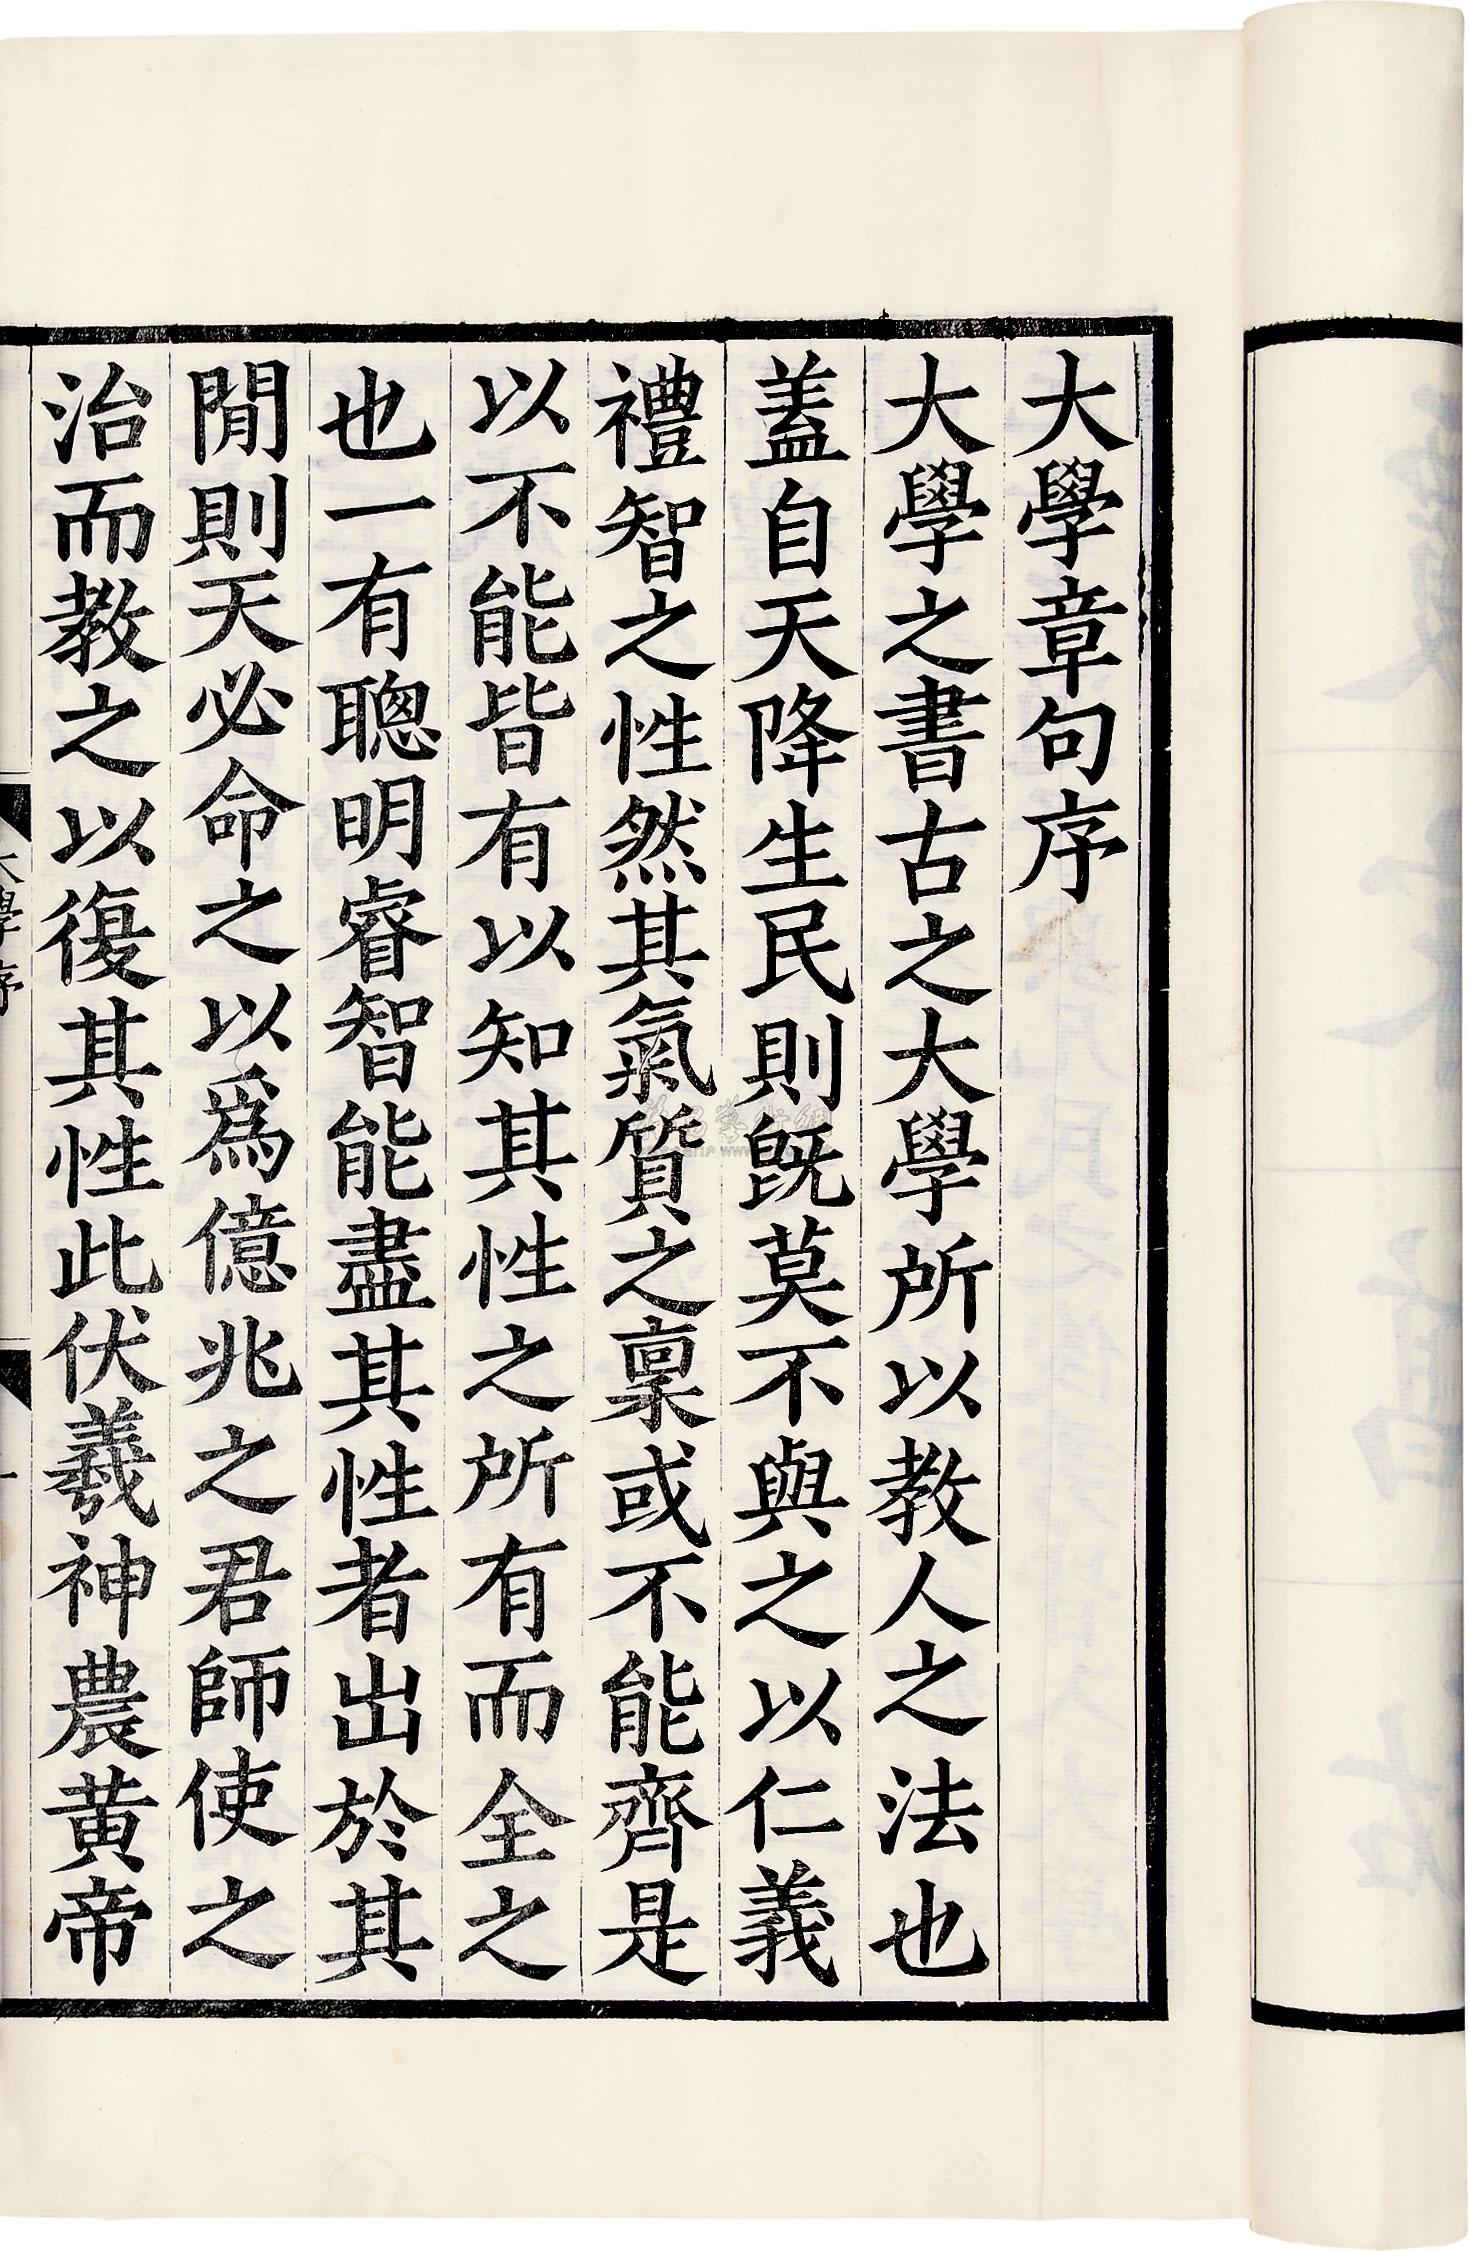 大學章句序
大學之書古之大學所以教人之法也
蓋自天降生民則旣莫不與之以仁義
禮智之性然其氣質之稟或不能齊是
以不能皆有以知其性之所有而全之
也一有聰明睿智能盡其性者出於其
閒則天必命之以爲億兆之君師使之
治而教之以復其性此伏羲神農黃帝
大學序
一